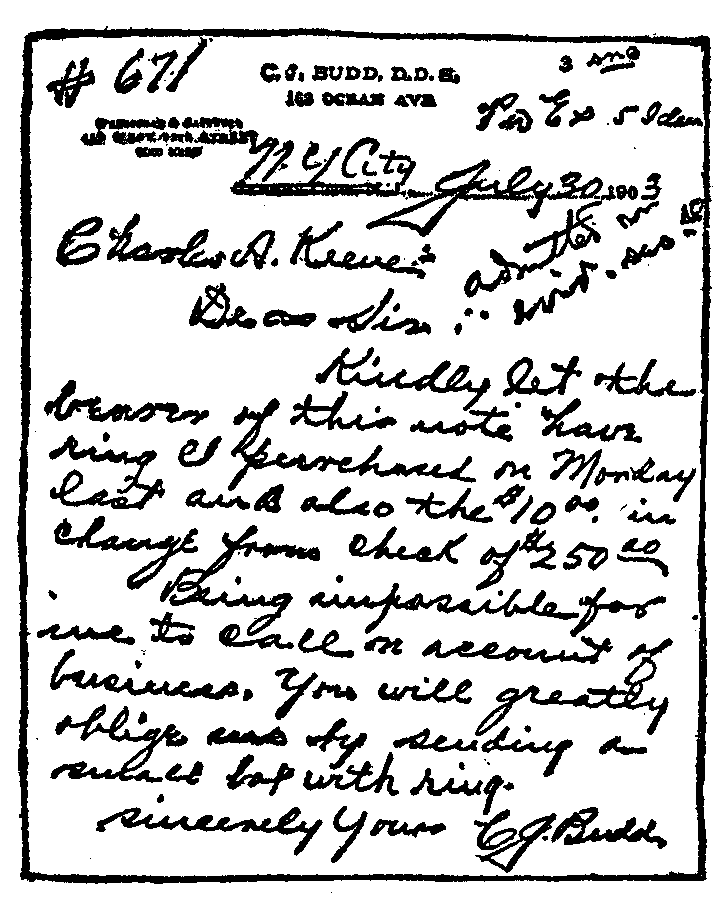 # 671
C. J. BUDD, D.D.S.
163 OCEAN AVE
3
Ex 5 Iden
STREET
NEW YORK
N. Y City
July 30 1903
Charles A. Keene:
admitted
Dear Sir:
Kindly let the
bearer of this note have
ring I purchased on Monday
last and also the $10 00. in
change from check of $250 00
Being impossible for
me to call on account of
business. You will greatly
oblige me by sending a
small box with ring.
sincerely Yours C J. Budd.